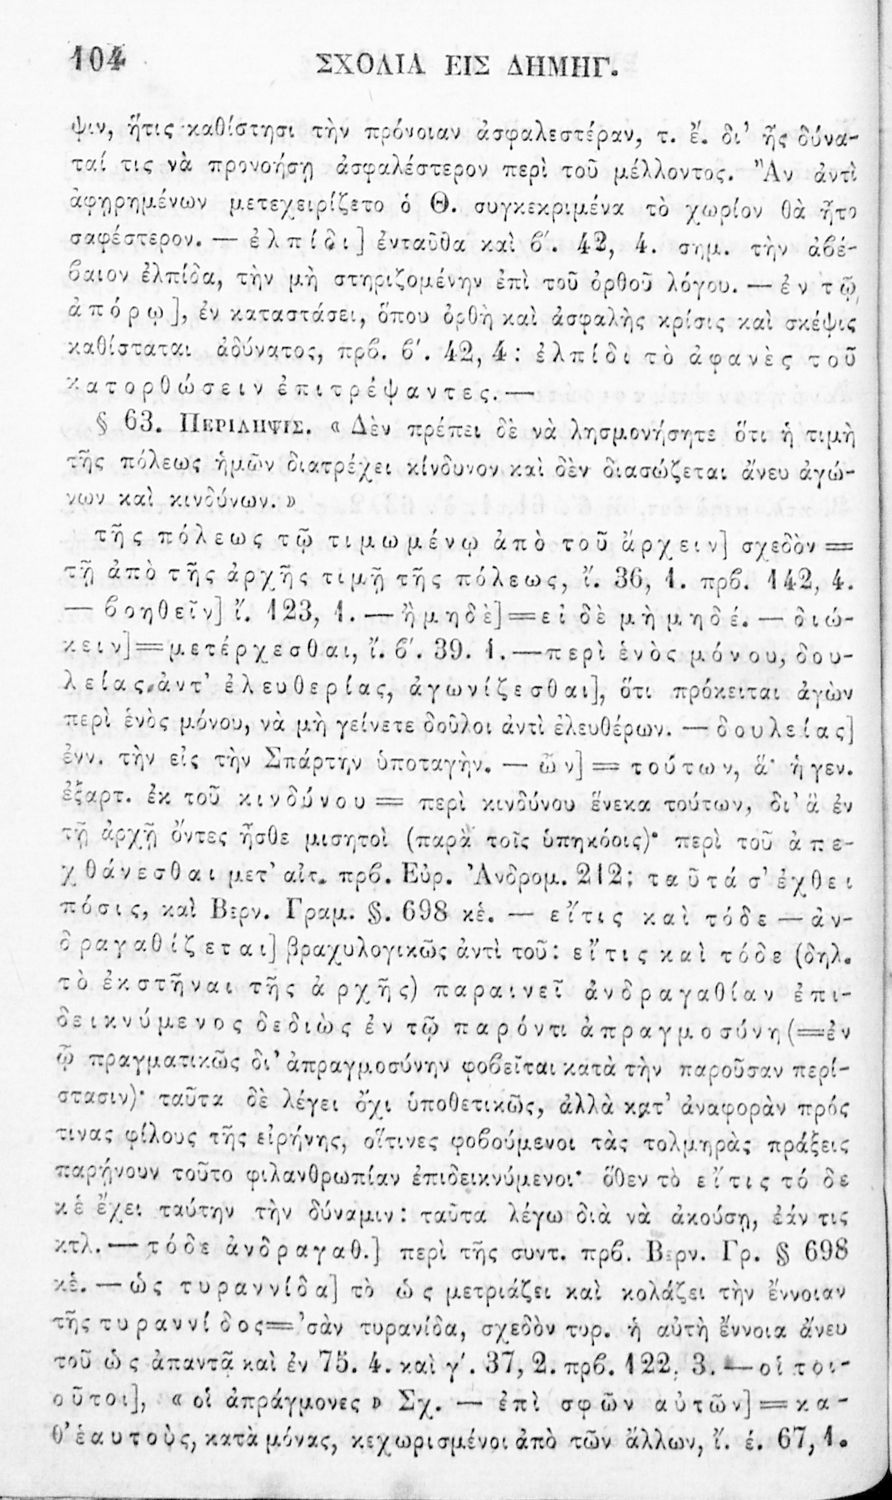 104 ΣΧΟΛΙΑ ΕΙΣ ΔΗΜΗΓ.
ψιν, ἥτις καθίστησι τὴν πρόνοιαν ἀσφαλεστέραν, τ. ἔ. δι’ ἧς δύνα-
ταί τις νὰ προνοήσῃ ἀσφαλέστερον περὶ τοῦ μέλλοντος. Ἂν ἀντὶ
ἀφῃρημένων μετεχειρίζετο ὁ Θ. συγκεκριμένα τὸ χωρίον θὰ ἦτο
σαφέστερον. — ἐλπίδι] ἐνταῦθα καὶ β΄. 42, 4. σημ. τὴν ἀβέ-
βαιον ἐλπίδα, τὴν μὴ στηριζομένην ἐπὶ τοῦ ὀρθοῦ λόγου. — ἐν τῷ
ἀπόρῳ], ἐν καταστάσει, ὅπου ὀρθὴ καὶ ἀσφαλὴς κρίσις καὶ σκέψις
καθίσταται ἀδύνατος, πρβ. β΄. 42, 4: ἐλπίδι τὸ ἀφανὲς τοῦ
κατορθώσειν ἐπιτρέψαντες. —
§ 63. ΠΕΡΙΛΗΨΙΣ. « Δὲν πρέπει δὲ νὰ λησμονήσητε ὅτι ἡ τιμὴ
τῆς πόλεως ἡμῶν διατρέχει κίνδυνον καὶ δὲν διασώζεται ἄνευ ἀγώ-
νων καὶ κινδύνων. »
τῆς πόλεως τῷ τιμωμένῳ ἀπὸ τοῦ ἄρχειν] σχεδὸν =
τῇ ἀπὸ τῆς ἀρχῆς τιμῇ τῆς πόλεως, ἴ. 36, 1. πρβ. 142, 4.
— βοηθεῖν] ἴ. 123, 1. — ἢ μηδὲ] = εἰ δὲ μὴ μηδέ. — διώ-
κειν] = μετέρχεσθαι, ἴ. β΄. 39. 1. — περὶ ἑνὸς μόνου, δου-
λείας ἀντ’ ἐλευθερίας, ἀγωνίζεσθαι], ὅτι πρόκειται ἀγὼν
περὶ ἑνὸς μόνου, νὰ μὴ γείνετε δοῦλοι ἀντὶ ἐλευθέρων. — δουλείας]
ἐνν. τὴν εἰς τὴν Σπάρτην ὑποταγὴν. — ὧν] = τούτων, ἅ· ἡ γεν.
ἐξαρτ. ἐκ τοῦ κινδύνου = περὶ κινδύνου ἕνεκα τούτων, δι’ ἃ ἐν
τῇ ἀρχῇ ὄντες ἦσθε μισητοὶ (παρὰ τοῖς ὑπηκόοις)· περὶ τοῦ ἀπε-
χθάνεσθαι μετ’ αἰτ. πρβ. Εὐρ. Ἀνδρομ. 212: ταῦτά σ’ ἔχθει
πόσις, καὶ Βερν. Γραμ. §. 698 κἑ. — εἴτις καὶ τόδε — ἀν-
δραγαθίζεται] βραχυλογικῶς ἀντὶ τοῦ: εἴτις καὶ τόδε (δηλ.
τὸ ἐκστῆναι τῆς ἀρχῆς) παραινεῖ ἀνδραγαθίαν ἐπι-
δεικνύμενος δεδιὼς ἐν τῷ παρόντι ἀπραγμοσύνῃ (=ἐν
ᾧ πραγματικῶς δι’ ἀπραγμοσύνην φοβεῖται κατὰ τὴν παροῦσαν περί-
στασιν)· ταῦτα δὲ λέγει ὄχι ὑποθετικῶς, ἀλλὰ κατ’ ἀναφορὰν πρός
τινας φίλους τῆς εἰρήνης, οἵτινες φοβούμενοι τὰς τολμηρὰς πράξεις
παρῄνουν τοῦτο φιλανθρωπίαν ἐπιδεικνύμενοι· ὅθεν τὸ εἴτις τόδε
κἑ ἔχει ταύτην τὴν δύναμιν: ταῦτα λέγω διὰ νὰ ἀκούσῃ, ἐάν τις
κτλ. — τόδε ἀνδραγαθ.] περὶ τῆς συντ. πρβ. Βερν. Γρ. § 698
κἑ. — ὡς τυραννίδα] τὸ ὡς μετριάζει καὶ κολάζει τὴν ἔννοιαν
τῆς τυραννίδος = ’σὰν τυρανίδα, σχεδὸν τυρ. ἡ αὐτὴ ἔννοια ἄνευ
τοῦ ὡς ἀπαντᾷ καὶ ἐν 75. 4. καὶ γ΄. 37, 2. πρβ. 122, 3. — οἱ τοι-
οῦτοι], « οἱ ἀπράγμονες » Σχ. — ἐπὶ σφῶν αὐτῶν] = κα-
θ’ ἑαυτοὺς, κατὰ μόνας, κεχωρισμένοι ἀπὸ τῶν ἄλλων, ἴ. ἑ. 67, 1.